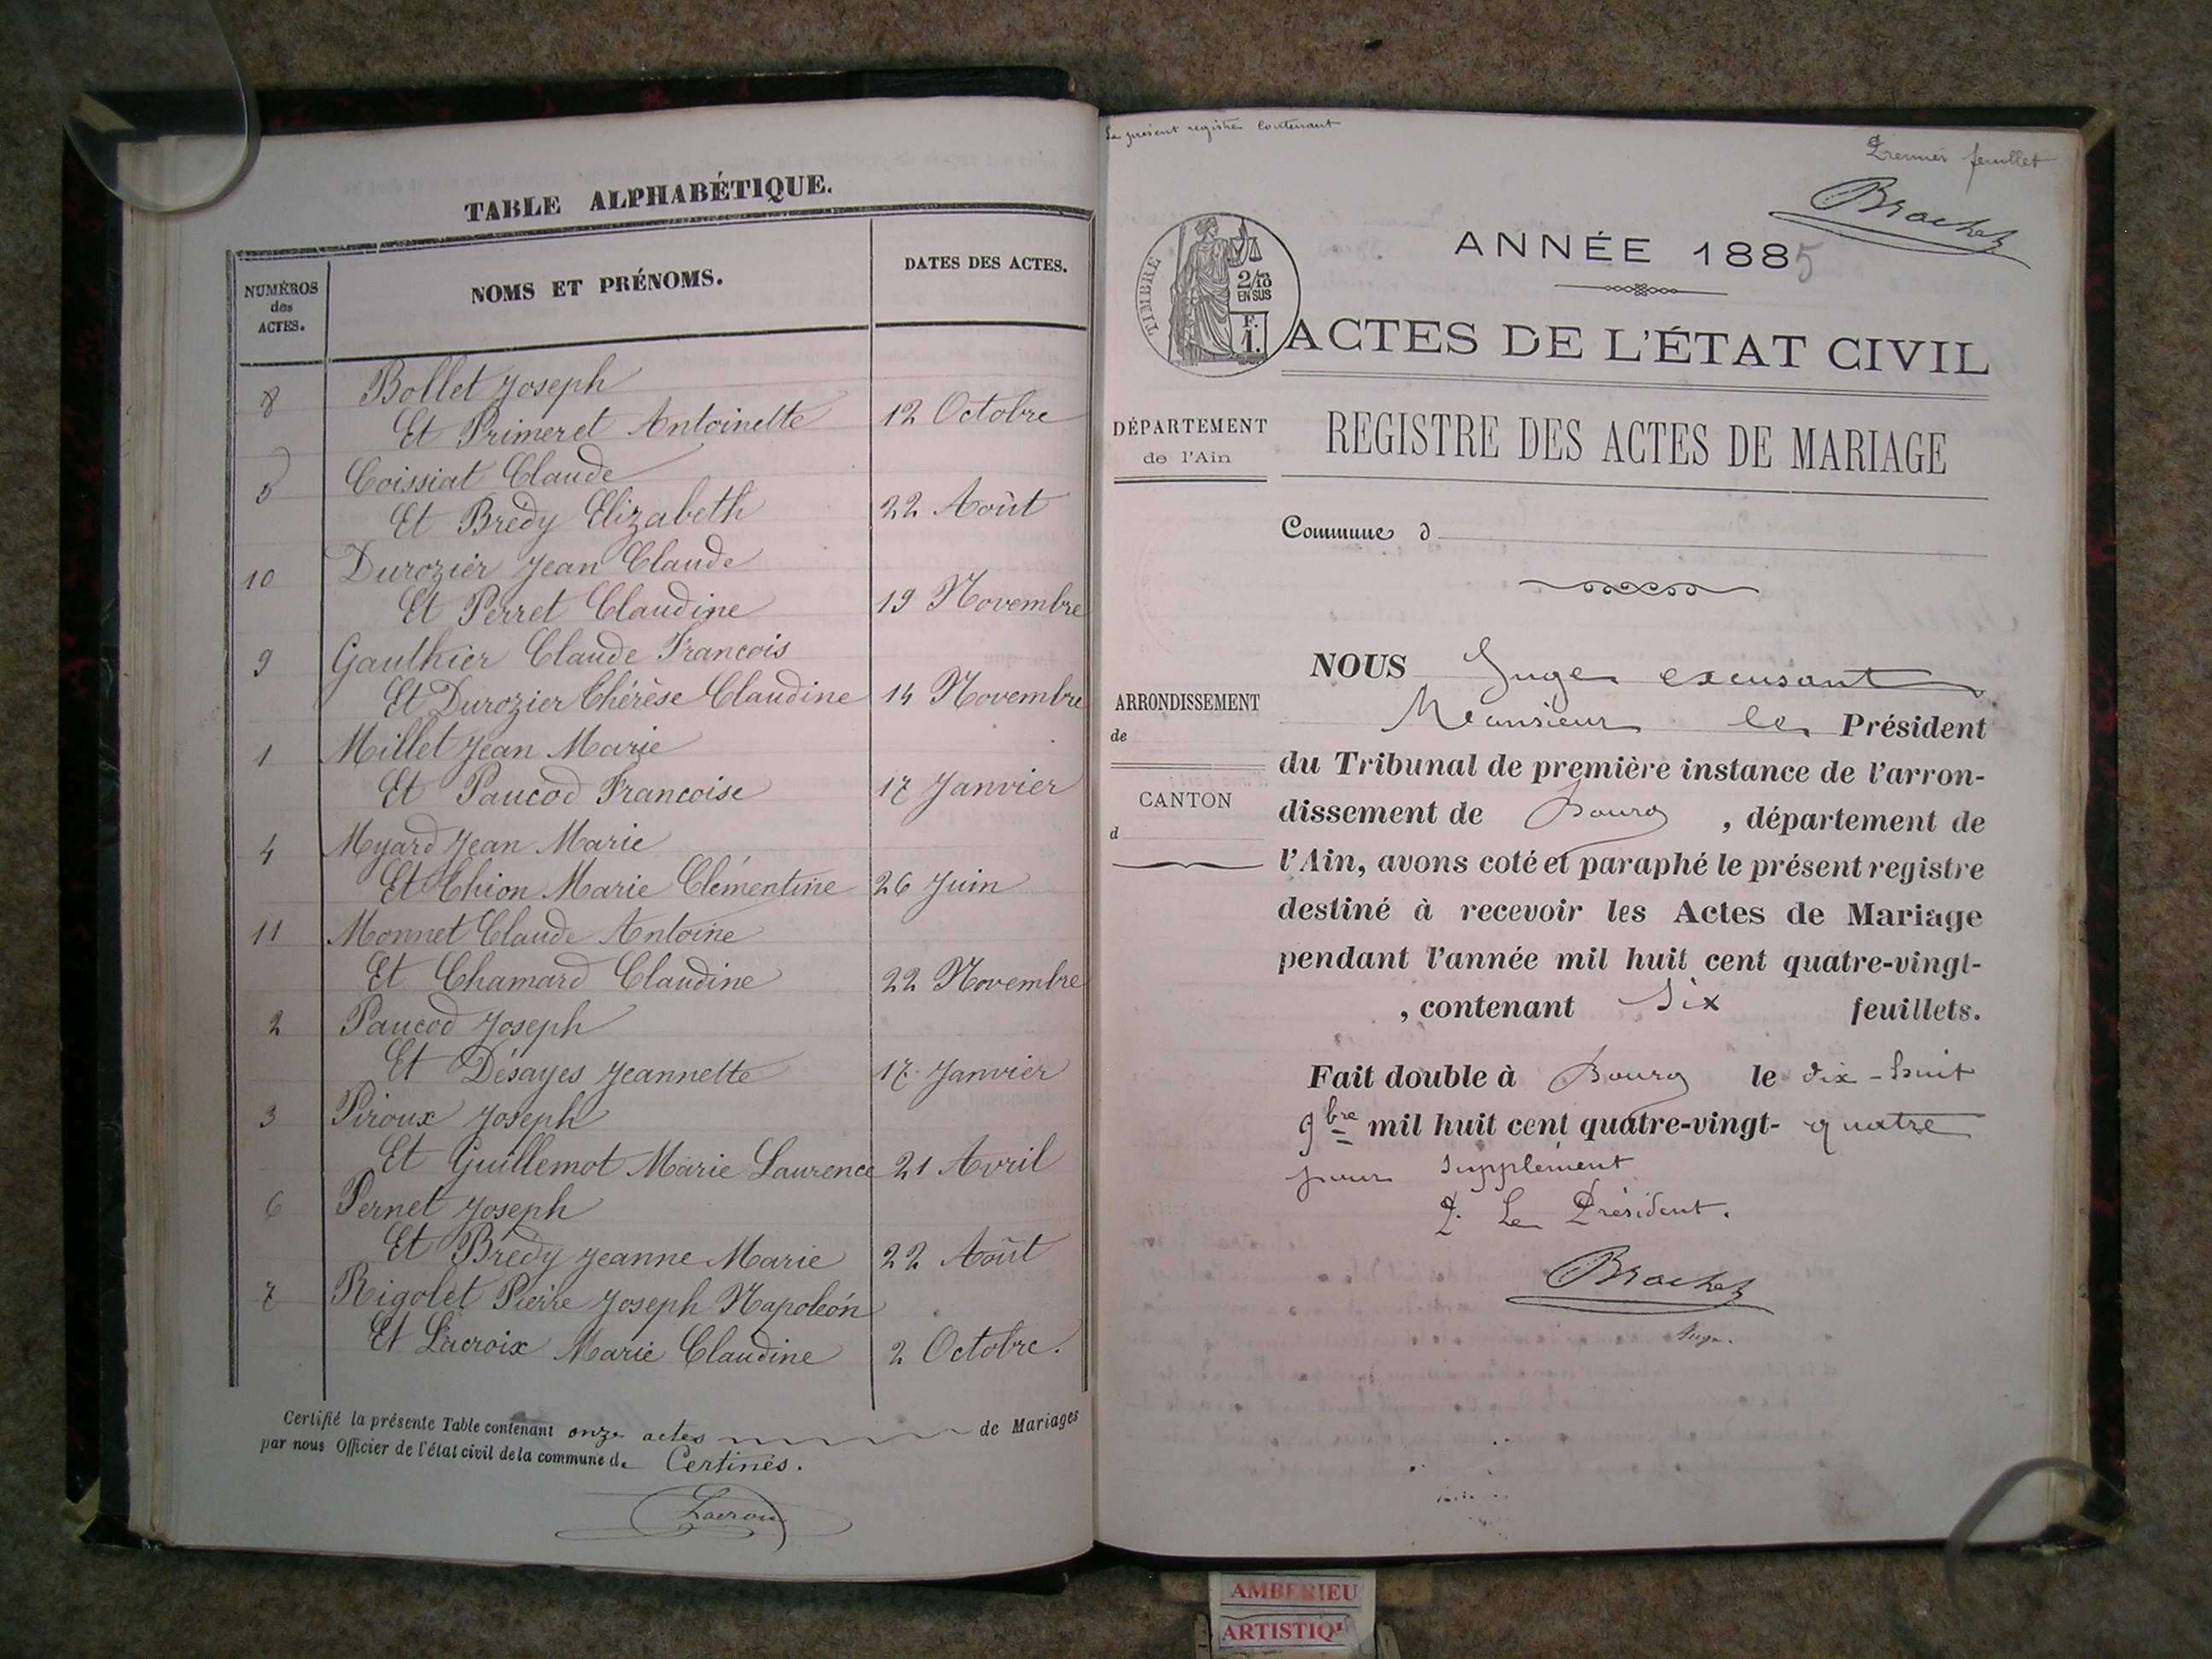 TABLE ALPHABÉTIQUE.
NUMÉROS
des
ACTES.
NOMS ET PRÉNOMS.
DATES DES ACTES.
8 Bollet Joseph
Et Primeret Antoinette 12 Octobre
5 Coissiat Claude
Et Brédy Elizabeth 22 Août
10 Durozier Jean Claude
Et Perret Claudine 19 Novembre
9 Gaulhier Claude Francois
Et Durozier Thérèse Claudine 14 Novembre
1 Millet Jean Marie
Et Paucod Francoise 17 Janvier
4 Myard Jean Marie
Et Chion Marie Clémentine 26 Juin
11 Monnet Claude Antoine
Et Chamard Claudine 22 Novembre
2 Paucod Joseph
Et Désayes Jeannette 17 Janvier
3 Piroux Joseph
Et Guillemot Marie Laurence 21 Avril
6 Pernet Joseph
Et Brédy Jeanne Marie 22 Août
7 Rigolet Pierre Joseph Napoléon
Et Lacroix Marie Claudine 2 Octobre.
Certifié la présente Table contenant onze actes de Mariages
par nous Officier de l'état civil de la commune de Certines.
Lacroix
Le présent registre contenant
Premier feuillet
Brochet
TIMBRE
2/10
EN SUS
F.
1.
ANNÉE 1885
ACTES DE L'ÉTAT CIVIL
DÉPARTEMENT
de l'Ain
REGISTRE DES ACTES DE MARIAGE
Commune d
ARRONDISSEMENT
de
CANTON
d
NOUS Juge excusant
Monsieur le Président
du Tribunal de première instance de l'arron-
dissement de Bourg , département de
l'Ain, avons coté et paraphé le présent registre
destiné à recevoir les Actes de Mariage
pendant l'année mil huit cent quatre-vingt-
, contenant Six feuillets.
Fait double à Bourg le dix-huit
9bre mil huit cent quatre-vingt- quatre
pour supplément
P. Le Président.
Brochet
Juge.
AMBERIEU
ARTISTIQ